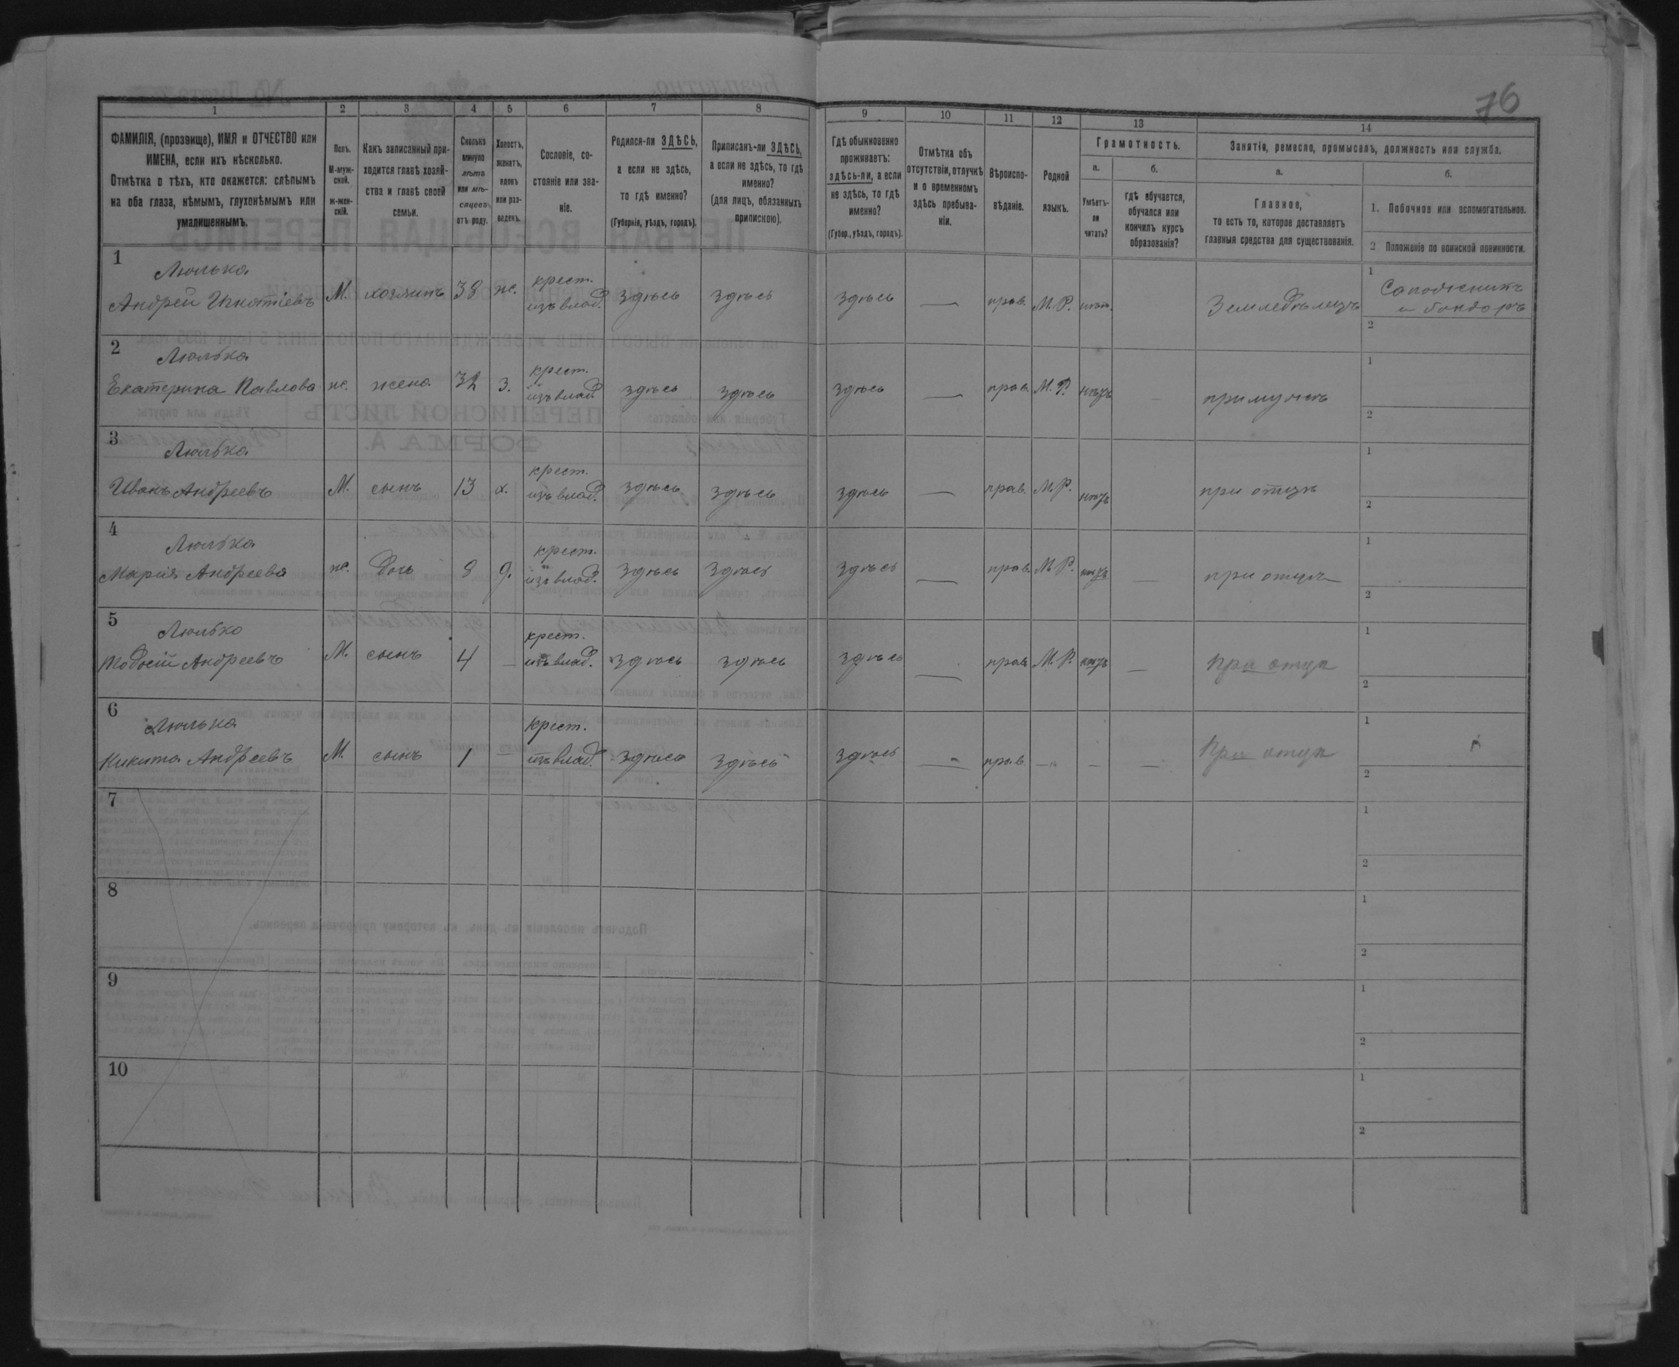 76
1 2 3 4 5 6 7 8 9 10 11 12 13 14
ФАМИЛІЯ, (прозвище), ИМЯ и ОТЧЕСТВО или
ИМЕНА, если ихъ нѣсколько.
Отмѣтка о тѣхъ, кто окажется: слѣпымъ
на оба глаза, нѣмымъ, глухонѣмымъ или
умалишеннымъ.
Полъ.
М-муж-
ской.
Ж-жен-
скій.
Какъ записанный при-
ходится главѣ хозяй-
ства и главѣ своей
семьи.
Сколько
минуло
лѣтъ
или мѣ-
сяцевъ
отъ роду.
Холостъ,
женатъ,
вдовъ
или раз-
веденъ.
Сословіе, со-
стояніе или зва-
ніе.
Родился-ли ЗДѢСЬ,
а если не здѣсь,
то гдѣ именно?
(Губернія, уѣздъ, городъ).
Приписанъ-ли ЗДѢСЬ,
а если не здѣсь, то гдѣ
именно?
(для лицъ, обязанныхъ
припискою).
Гдѣ обыкновенно
проживаетъ:
здѣсь-ли, а если
не здѣсь, то гдѣ
именно?
(Губер., уѣздъ, городъ).
Отмѣтка объ
отсутствіи, отлучкѣ
и о временномъ
здѣсь пребыва-
ніи.
Вѣроиспо-
вѣданіе.
Родной
языкъ.
Грамотность.
а.
Умѣетъ-
ли
читать?
б.
гдѣ обучается,
обучался или
кончилъ курсъ
образованія?
Занятія, ремесло, промыселъ, должность или служба.
а.
Главное,
то есть то, которое доставляетъ
главныя средства для существованія.
б.
1. Побочное или вспомогательное.
2 Положеніе по воинской повинности.
1
Люлька крест.
Андрей Игнатіевъ М. хозяинъ 38 ж. изъ влад. здѣсь здѣсь здѣсь — прав. М.Р. Земледѣлецъ
1 Сапожникъ
и бондаръ
2
2
Люлька крест.
Екатерина Павлова ж. жена 32 з. изъ влад. здѣсь здѣсь здѣсь — прав. М.Р. нѣтъ при мужѣ
1
2
3
Люлька крест.
Иванъ Андреевъ М. сынъ 13 х. изъ влад. здѣсь здѣсь здѣсь — прав. М.Р. нѣтъ при отцѣ
1
2
4
Люлька крест.
Марія Андреева ж. дочь 9 д. изъ влад. здѣсь здѣсь здѣсь — прав. М.Р. нѣтъ — при отцѣ
1
2
5
Люлько крест.
Андреевъ М. сынъ 4 — изъ влад. здѣсь здѣсь здѣсь — прав. М.Р. нѣтъ — при отцѣ
1
2
6
Люлька крест.
Никита Андреевъ М. сынъ 1 — изъ влад. здѣсь здѣсь здѣсь — прав. — — — При отцѣ
1
2
7
1
2
8
1
2
9
1
2
10
1
2